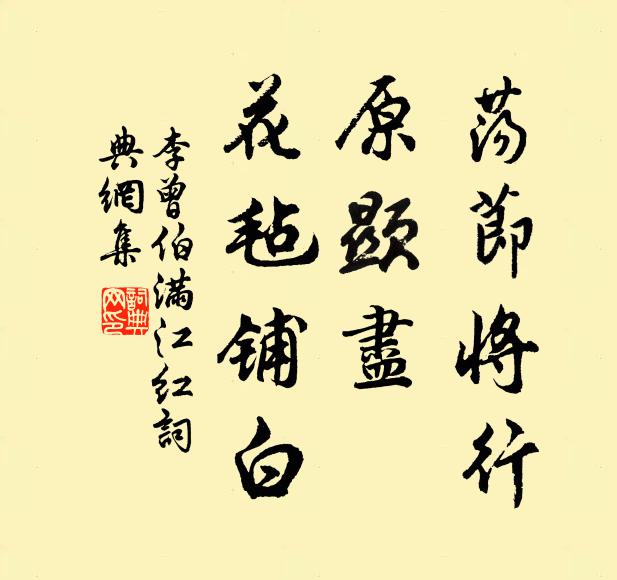 荡節將行
原顯盡
花毡铺白
李曾伯满江红詞
典網集
詞典
网印